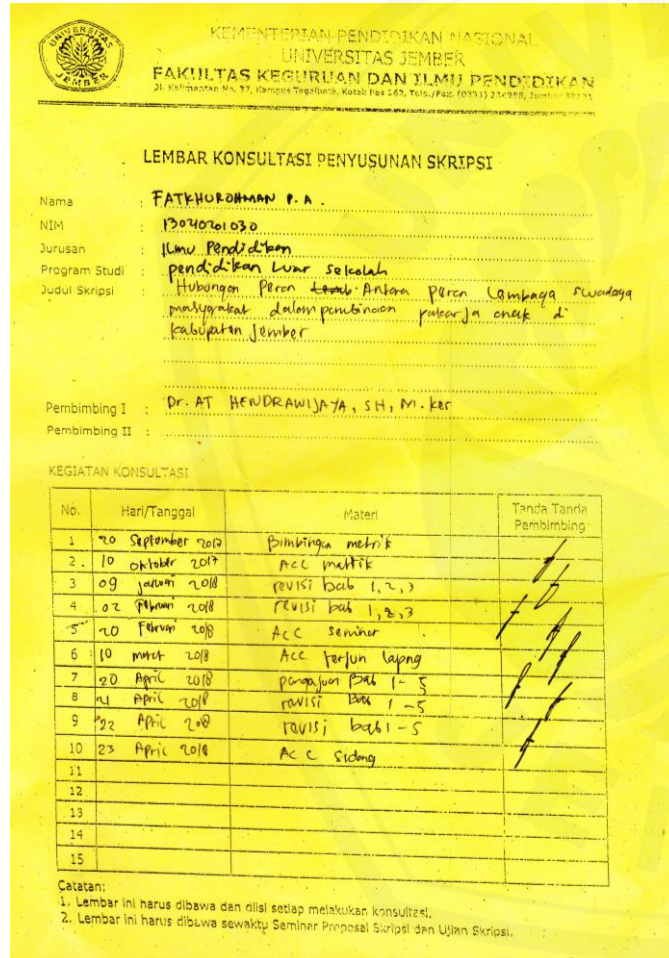 UNIVERSITAS JEMBER
KEMENTERIAN PENDIDIKAN NASIONAL
UNIVERSITAS JEMBER
FAKULTAS KEGURUAN DAN ILMU PENDIDIKAN
Jl. Kalimantan No. 37, Kampus Tegalboto, Kotak Pos 162, Telp./Fax. (0331)
LEMBAR KONSULTASI PENYUSUNAN SKRIPSI
Nama : FATKHUROHMAN P. A.
NIM :
Jurusan : Ilmu Pendidikan
Program Studi : pendidikan Luar sekolah
Judul Skripsi : Hubungan Peran Antara peran Lembaga swadaya
masyarakat dalam pembinaan pekerja anak di
kabupaten jember
Pembimbing I : Dr. AT HENDRAWIJAYA, SH, M. kes
Pembimbing II :
KEGIATAN KONSULTASI
No. Hari/Tanggal Materi Tanda Tanda Pembimbing
1 20 September 2017 Bimbingan metrik
2. 10 oktober 2017 Acc mattik
3 09 januari 2018 revisi bab 1, 2, 3
4 02 Februari 2018 revisi bab 1, 2, 3
5 20 Februari 2018 Acc seminar
6 10 maret 2018 Acc terjun lapng
7 20 April 2018 pengajuan Bab 1 - 5
8 21 April 2018 revisi Bab 1 - 5
9 22 April 2018 revisi bab 1 - 5
10 23 April 2018 Acc Sidang
11
12
13
14
15
Catatan:
1. Lembar ini harus dibawa dan diisi setiap melakukan konsultasi.
2. Lembar ini harus dibawa sewaktu Seminar Proposal Skripsi dan Ujian Skripsi.